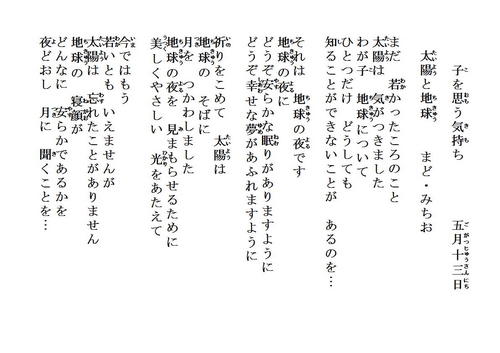 子を思う気持ち　五月十三日
太陽と地球　まど・みちお
まだ　若かったころのこと
太陽は　気がつきました
わが子　地球について
ひとつだけ　どうしても
知ることができないことが　あるのを…
それは　地球の夜です
地球の夜に
どうぞ安らかな眠りがありますように
どうぞ幸せな夢があふれますように
祈りをこめて　太陽は
地球の　そばに
月を　つかわしました
地球の夜を　見まもらせるために
美しくやさしい　光をあたえて
今ではもう
若いとも　いえませんが
太陽は　忘れたことがありません
地球の　寝顔が
どんなに　安らかであるかを
夜どおし　月に　聞くことを…